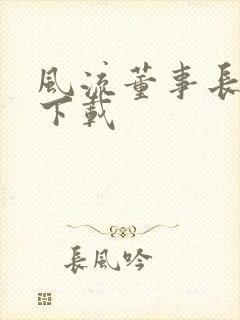 風流董事長
下載
長風吟